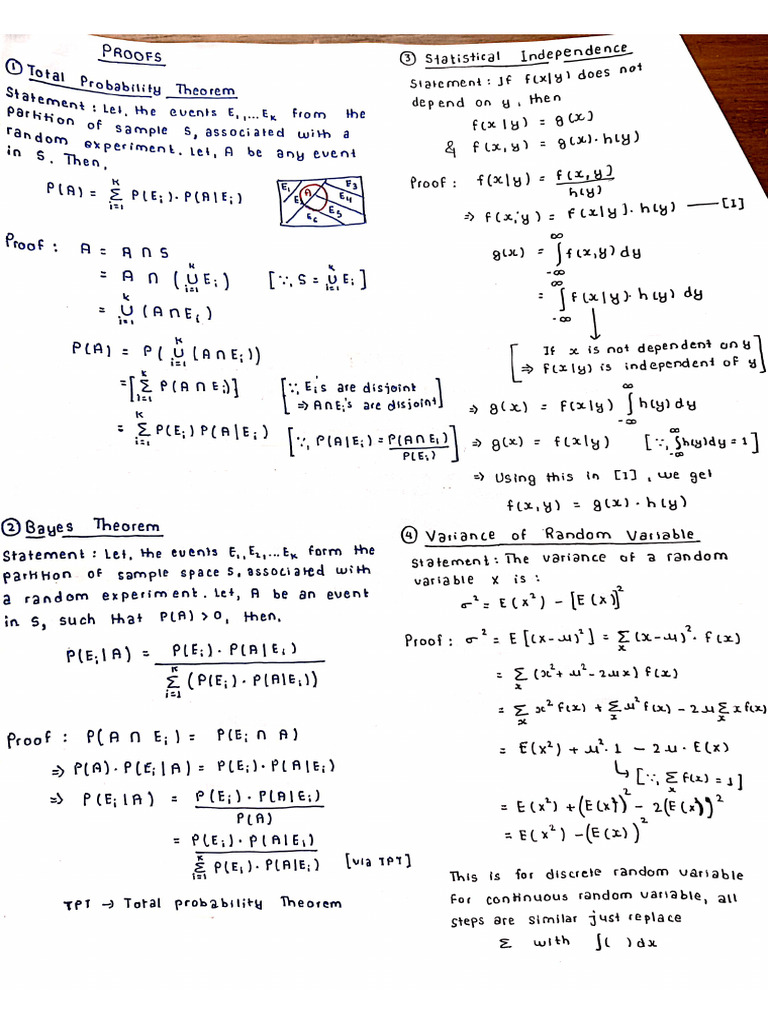 PROOFS
① Total Probability Theorem
Statement : Let, the events E₁,...Eₖ from the
partition of sample S, associated with a
random experiment. Let, A be any event
in S. Then,
P(A) = ᵏΣᵢ₌₁ P(Eᵢ)·P(A|Eᵢ)
E₁ A E₃
E₂ E₄
E₅
E₆
Proof : A = A ∩ S
= A ∩ (ᵏ∪ᵢ₌₁ Eᵢ) [∵, S = ᵏ∪ᵢ₌₁ Eᵢ]
= ᵏ∪ᵢ₌₁ (A∩Eᵢ)
P(A) = P(ᵏ∪ᵢ₌₁ (A∩Eᵢ))
= [ᵏΣᵢ₌₁ P(A∩Eᵢ)] [∵, Eᵢ's are disjoint
⇒ A∩Eᵢ's are disjoint]
= ᵏΣᵢ₌₁ P(Eᵢ) P(A|Eᵢ) [∵, P(A|Eᵢ) = P(A∩Eᵢ)/P(Eᵢ)]
② Bayes Theorem
Statement : Let, the events E₁,E₂,...Eₖ form the
partition of sample space S, associated with
a random experiment. Let, A be an event
in S, such that P(A) > 0, then,
P(Eᵢ|A) = P(Eᵢ)·P(A|Eᵢ) / ᵏΣᵢ₌₁ (P(Eᵢ)·P(A|Eᵢ))
Proof : P(A ∩ Eᵢ) = P(Eᵢ ∩ A)
⇒ P(A)·P(Eᵢ|A) = P(Eᵢ)·P(A|Eᵢ)
⇒ P(Eᵢ|A) = P(Eᵢ)·P(A|Eᵢ) / P(A)
= P(Eᵢ)·P(A|Eᵢ) / ᵏΣᵢ₌₁ P(Eᵢ)·P(A|Eᵢ) [via TPT]
TPT → Total probability Theorem
③ Statistical Independence
Statement : If f(x|y) does not
depend on y, then
f(x|y) = g(x)
& f(x,y) = g(x)·h(y)
Proof : f(x|y) = f(x,y) / h(y)
⇒ f(x,y) = f(x|y)·h(y) —— [1]
g(x) = ∫₋∞^∞ f(x,y) dy
= ∫₋∞^∞ f(x|y)·h(y) dy
[If x is not dependent on y
⇒ f(x|y) is independent of y]
⇒ g(x) = f(x|y) ∫₋∞^∞ h(y) dy
⇒ g(x) = f(x|y) [∵, ∫₋∞^∞ h(y)dy = 1]
⇒ Using this in [1], we get
f(x,y) = g(x)·h(y)
④ Variance of Random Variable
Statement : The variance of a random
variable x is :
σ² = E(x²) − [E(x)]²
Proof : σ² = E[(x−μ)²] = Σₓ (x−μ)²·f(x)
= Σₓ (x² + μ² − 2μx) f(x)
= Σₓ x² f(x) + Σₓ μ² f(x) − 2μ Σₓ x f(x)
= E(x²) + μ²·1 − 2μ·E(x)
↳ [∵, Σₓ f(x) = 1]
= E(x²) + (E(x))² − 2(E(x))²
= E(x²) − (E(x))²
This is for discrete random variable
For continuous random variable, all
steps are similar just replace
Σ with ∫( ) dx